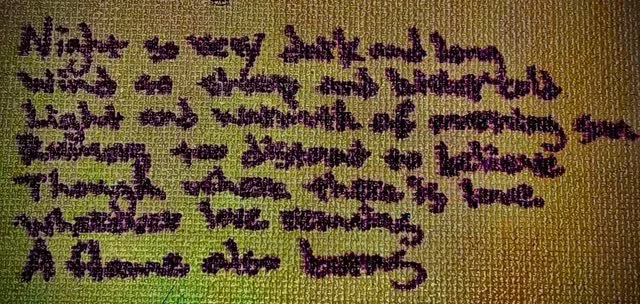 Night so very dark and long
Wind so strong and bitter cold
Light and warmth of morning Sun
too distant to believe
Though where there is love.
Whatever love
A flame also burns